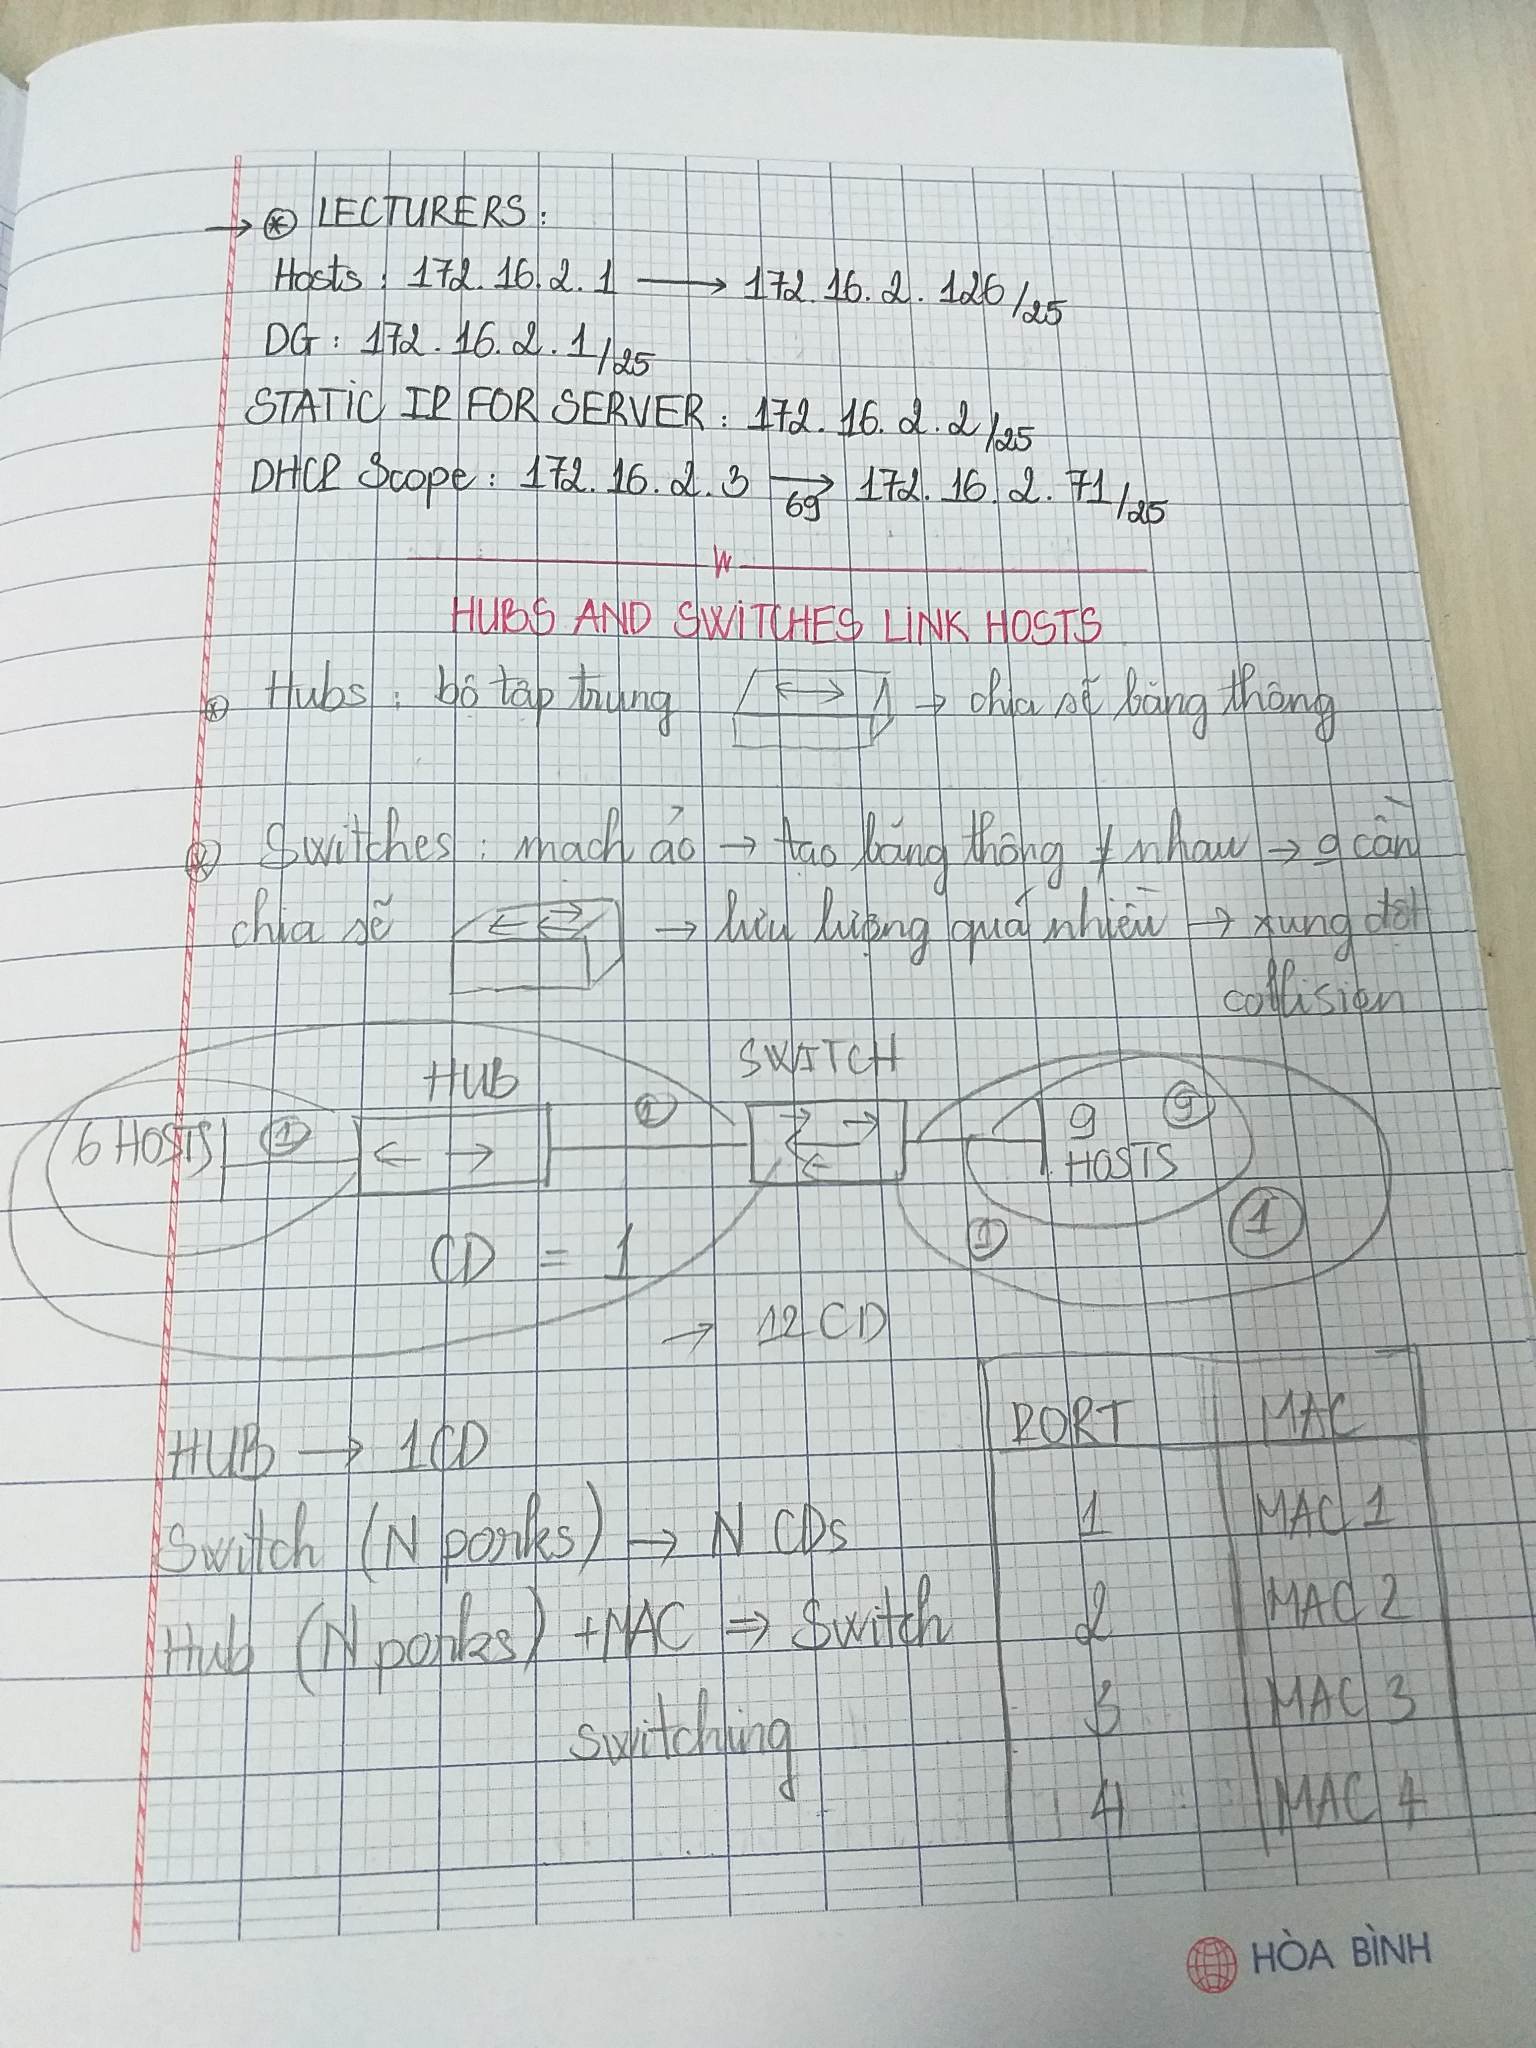 → ⊛ LECTURERS:
Hosts: 172.16.2.1 → 172.16.2.126/25
DG: 172.16.2.1/25
STATIC IP FOR SERVER: 172.16.2.2/25
DHCP Scope: 172.16.2.3 → 69 172.16.2.71/25
HUBS AND SWITCHES LINK HOSTS
⊛ Hubs: bộ tập trung → chia sẽ băng thông
⊛ Switches: mạch ảo → tạo băng thông ≠ nhau → 9 cần
chia sẽ → lưu lượng quá nhiều → xung đột
collision
HUB SWITCH
6 HOSTS 1 9 9
HOSTS
1 1
CD = 1
→ 12 CD
PORT MAC
HUB → 1CD
1 MAC 1
Switch (N ports) → N CDs
2 MAC 2
Hub (N ports) + MAC ⇒ Switch
3 MAC 3
switching
4 MAC 4
HÒA BÌNH